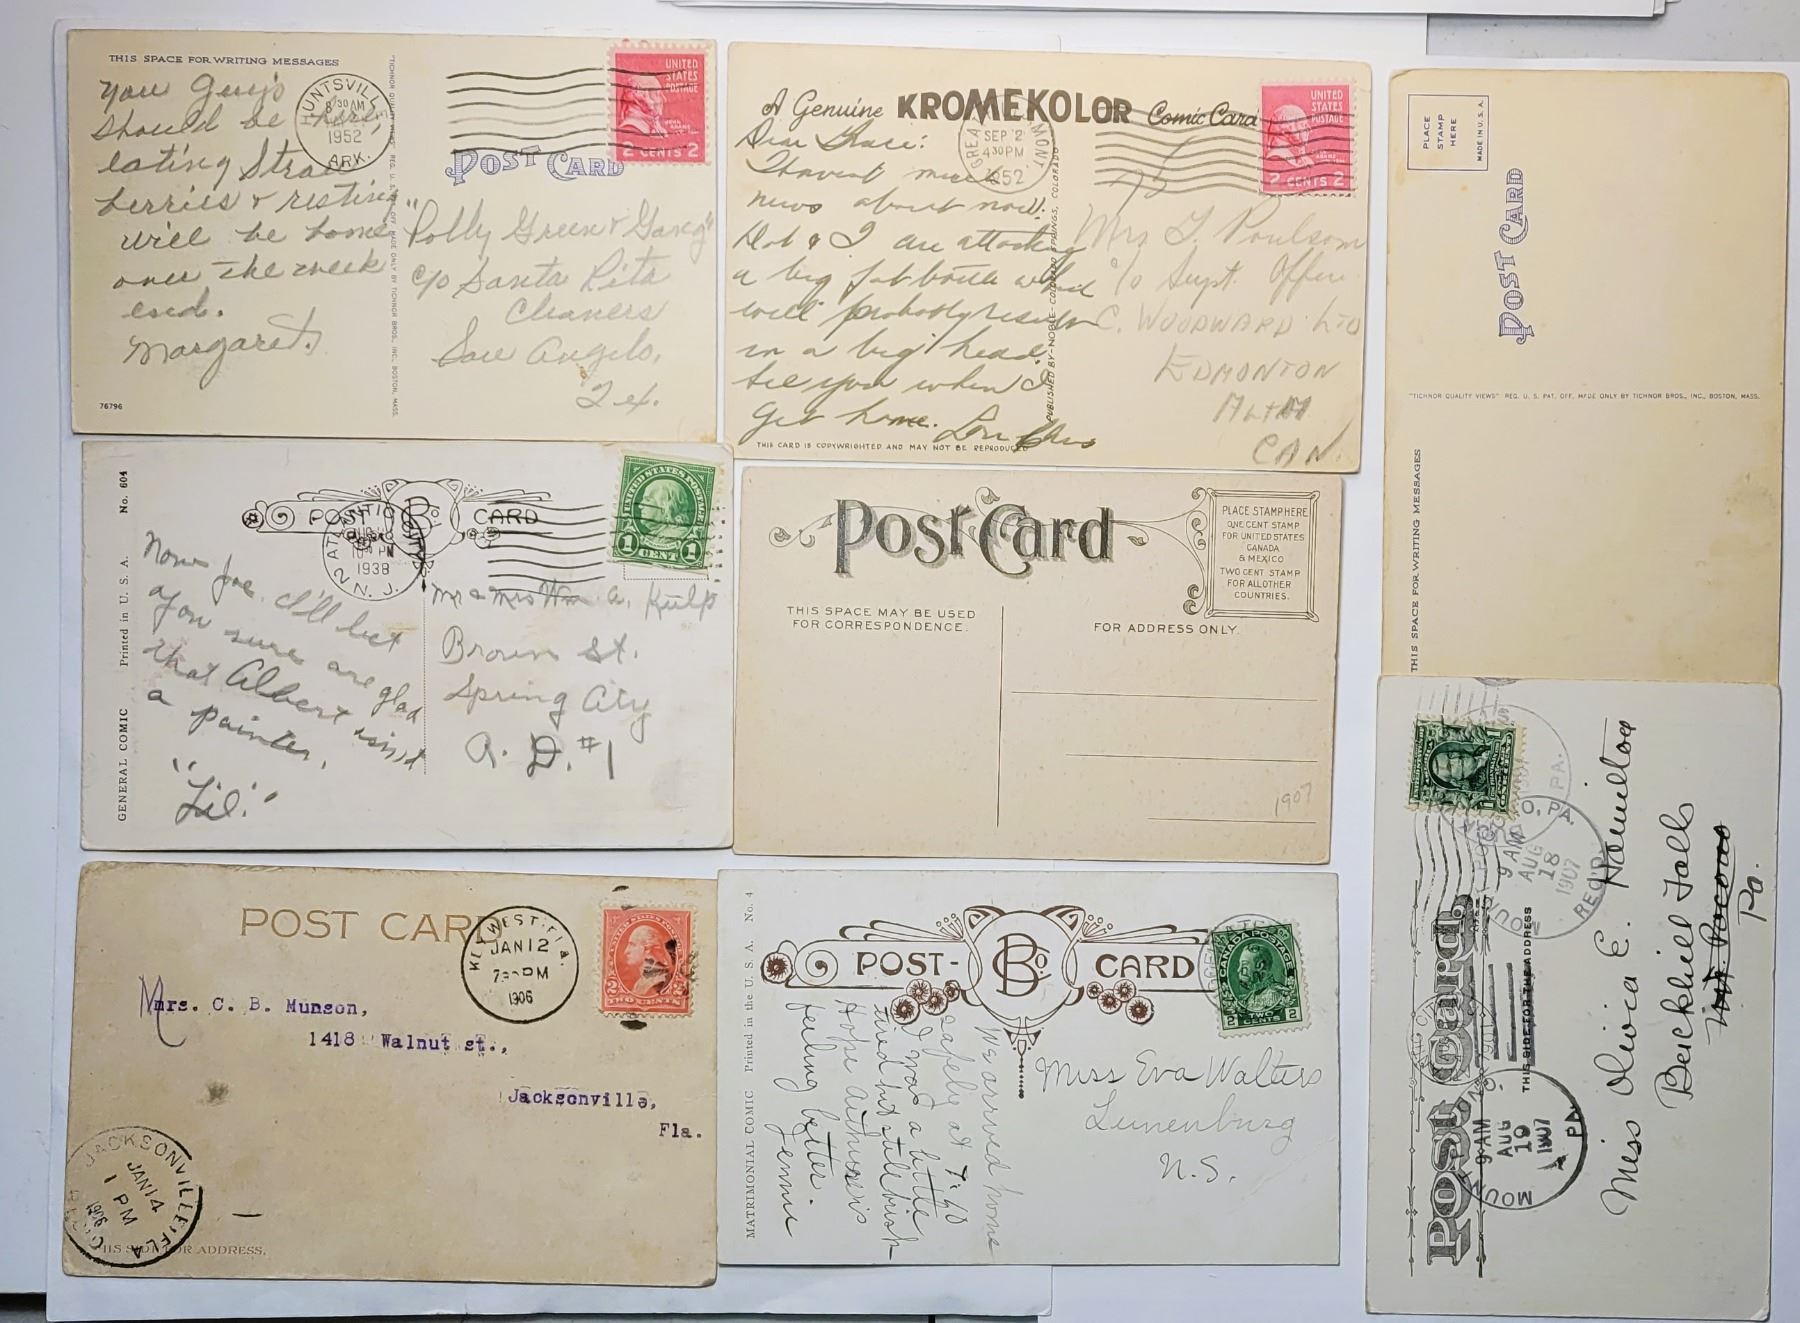 THIS SPACE FOR WRITING MESSAGES
You Guys
should be here,
eating Straw
berries & resting
will be home
over the week
end.
Margaret.
76796
HUNTSVILLE
8 30 AM
1952
ARK.
"TICHNOR QUALITY VIEWS" REG. U. S. PAT. OFF. MADE ONLY BY TICHNOR BROS., INC., BOSTON, MASS.
UNITED
STATES
POSTAGE
JOHN ADAMS
2 CENTS 2
POST CARD
"Polly Green & Gang"
c/o Santa Rita
Cleaners
San Angelo,
Tex.
A Genuine KROMEKOLOR Comic Card
Dear Grace:
Havent much
news about now.
Dot & I are attacking
a big fat bottle which
will probably result
in a big head.
See you when I
get home. Love
THIS CARD IS COPYWRIGHTED AND MAY NOT BE REPRODUCED
SEP 2
4 30 PM
1952
MONT.
PUBLISHED BY-NOBLE-COLORADO SPRINGS, COLORADO
UNITED
STATES
POSTAGE
2 CENTS 2
Mrs T. Poulsom
c/o Supt. Office
C. WOODWARD LTD
EDMONTON
ALTA
CAN.
PLACE
STAMP
HERE
MADE IN U. S. A.
POST CARD
"TICHNOR QUALITY VIEWS" REG. U. S. PAT. OFF. MADE ONLY BY TICHNOR BROS., INC., BOSTON, MASS.
THIS SPACE FOR WRITING MESSAGES
GENERAL COMIC Printed in U. S. A. No. 604
POST CARD
Co.
ATLANTIC CITY
1938
2 N. J.
UNITED STATES POSTAGE
1 CENT 1
Now Joe. I'll bet
you sure are glad
that Albert isn't
a painter.
"Lil."
Mr & Mrs Wm. A. Kulp
Brown St.
Spring City
R. D. #1
Post Card
PLACE STAMP HERE
ONE CENT STAMP
FOR UNITED STATES
CANADA
& MEXICO
TWO CENT STAMP
FOR ALL OTHER
COUNTRIES.
THIS SPACE MAY BE USED
FOR CORRESPONDENCE.
FOR ADDRESS ONLY.
1907
POST CARD
KEY WEST, FLA.
JAN 12
PM
1906
TWO CENTS
Mrs. C. B. Munson,
1418 Walnut st.,
Jacksonville,
Fla.
JACKSONVILLE, FLA
JAN 14
1 PM
1906
REC'D
THIS SIDE FOR ADDRESS.
MATRIMONIAL COMIC Printed in the U. S. A. No. 4
POST-CARD
B Co.
CANADA POSTAGE
2 TWO CENTS 2
We arrived home
safely at 7:40
I was a little
tired but still brisk
Hope
feeling better.
Jennie
Miss Eva Walters
Lunenburg
N.S.
Post Card.
THIS SIDE FOR THE ADDRESS
9 AM
AUG
18
1907
REC'D.
PA.
MOUNT POCONO
9 AM
AUG
19
1907
PA
Miss Olivia E. Hamilton
Beickhill Falls
Mt. Pocono
Pa.